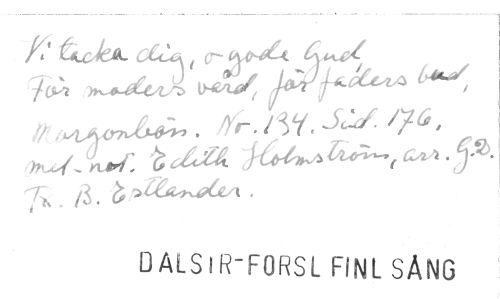 Vi tacka dig, o gode Gud
För moders vård, för faders bud,
Morgonbön. No. 134. Sid. 176.
mel-not. Edith Holmström, arr. G.D.
Tx. B. Estlander.
DALSIR-FORSL FINL SÅNG